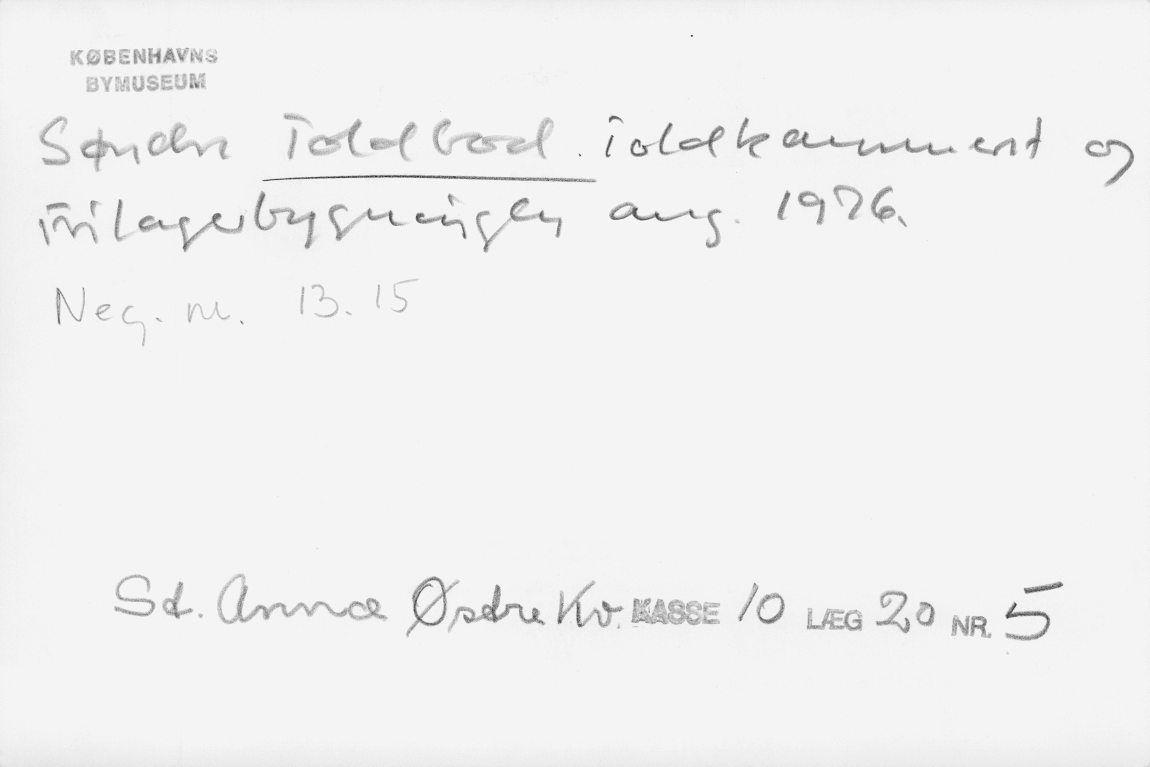 KØBENHAVNS
BYMUSEUM
Søndre Toldbod. Toldkammeret og
Frilagerbygningen aug. 1976.
Neg. nr. 13. 15
Sct. Annæ Østre Kv. KASSE 10 LÆG 20 NR. 5